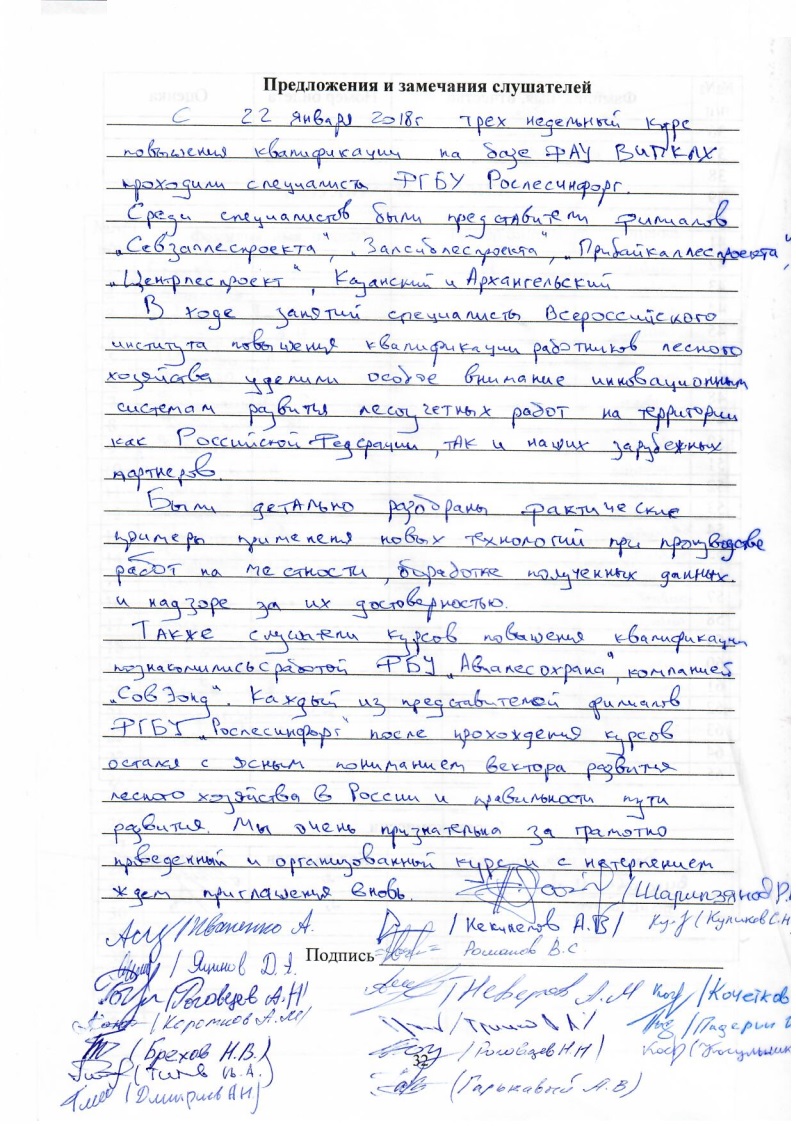 Предложения и замечания слушателей
С 22 января 2018г трех недельный курс
повышения квалификации на базе ФАУ ВИПКЛХ
проходили специалисты ФГБУ Рослесинфорг.
Среди специалистов были представители филиалов
„Севзаплеспроекта", „Запсиблеспроекта", „Прибайкаллеспроекта",
„Центрлеспроект", Казанский и Архангельский
В ходе занятий специалисты Всероссийского
института повышения квалификации работников лесного
хозяйства уделили особое внимание инновационным
системам развития лесоучетных работ на территории
как Российской Федерации, так и наших зарубежных
партнеров.
Были детально разобраны фактические
примеры применения новых технологий при производстве
работ на местности, обработке полученных данных
и надзоре за их достоверностью.
Также слушатели курсов повышения квалификации
познакомились с работой ФБУ „Авиалесохрана", компанией
„СовЗонд". Каждый из представителей филиалов
ФГБУ „Рослесинфорг" после прохождения курсов
остался с ясным пониманием вектора развития
лесного хозяйства в России и правильности пути
развития. Мы очень признательны за грамотно
проведенный и организованный курс и с нетерпением
ждем приглашения вновь. /Шарипзянов Р.
/Иваненко А. /Кекунелов А.В/ (Куликов С.Н
Подпись Романов В.С
/ Яцинов Д.Я.
/Роговцев А.Н/ /Неверов А.М /Кочетков
/Коротков А.М/ /Падерин
/Брехов Н.В.) 32 /Роговцев Н.Н/
(Титов А.)
/Дмитриев А.Н.) (Гарькавый А.В)